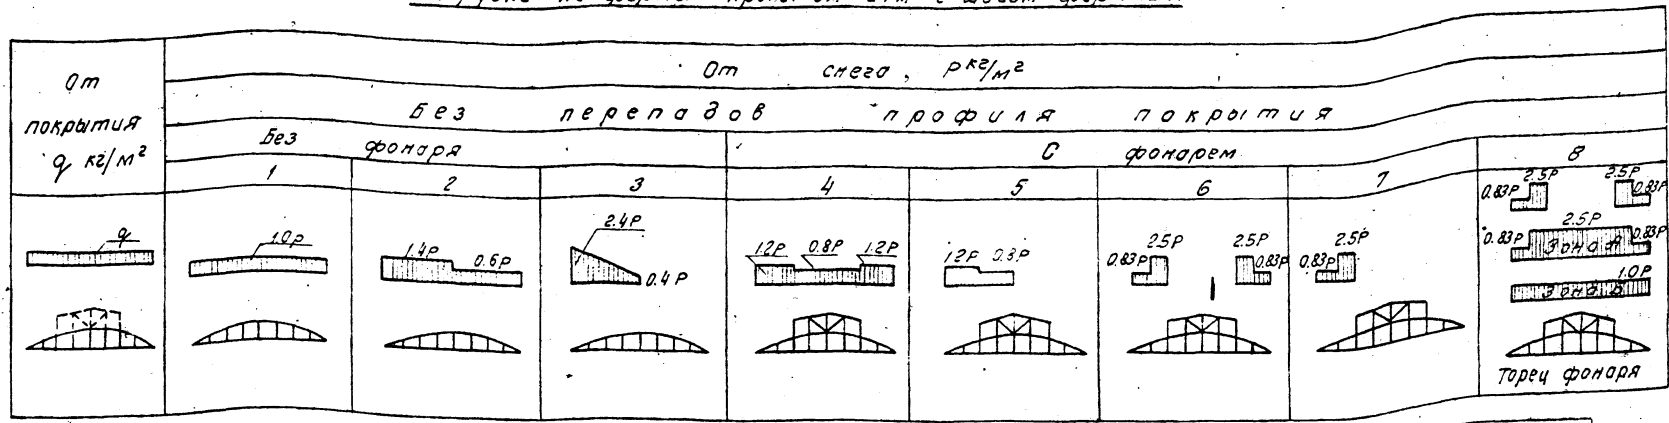 От
покрытия
q кг/м²
От снега, P кг/м²
Без перепадов профиля покрытия
Без фонаря
С фонарем
1
2
3
4
5
6
7
8
q
1.0P
1.4P
0.6P
2.4P
0.4P
1.2P
0.8P
1.2P
1.2P
0.8P
0.83P
2.5P
2.5P
0.83P
0.83P
2.5P
0.83P
2.5P
2.5P
0.83P
0.83P
2.5P
0.83P
Зона А
1.0P
Зона Б
Торец фонаря